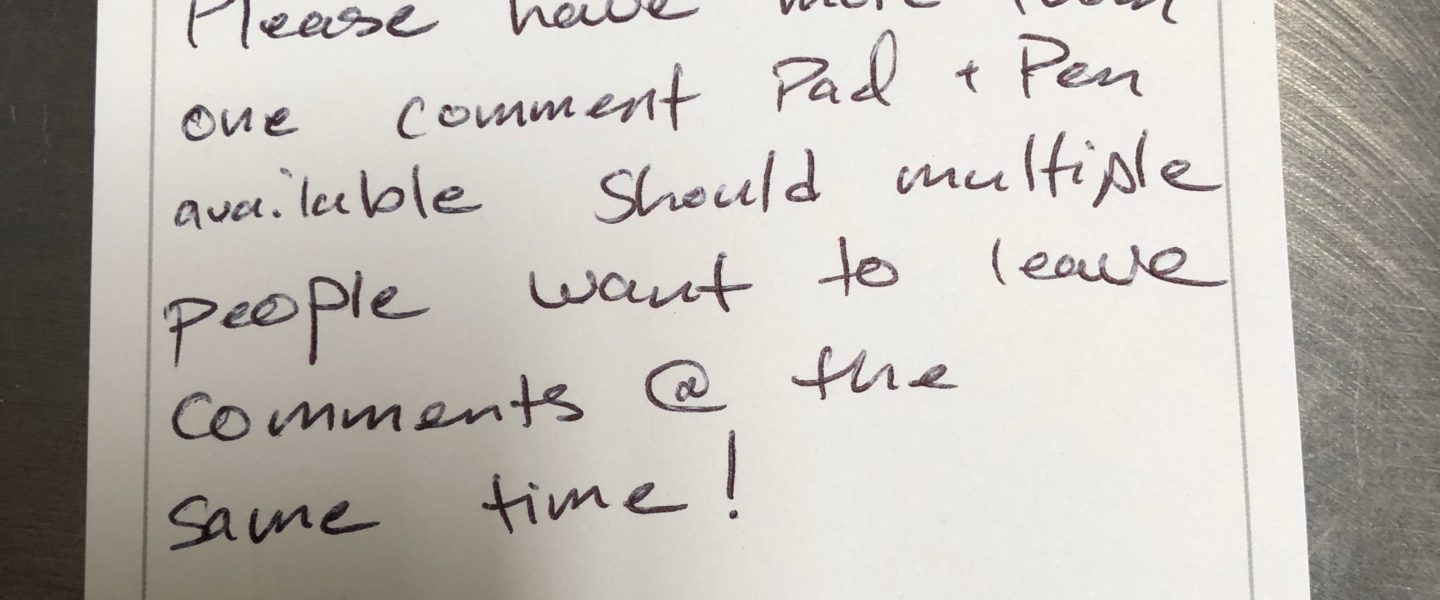 Please have more than
one comment Pad + Pen
available Should multiple
people want to leave
comments @ the
same time!